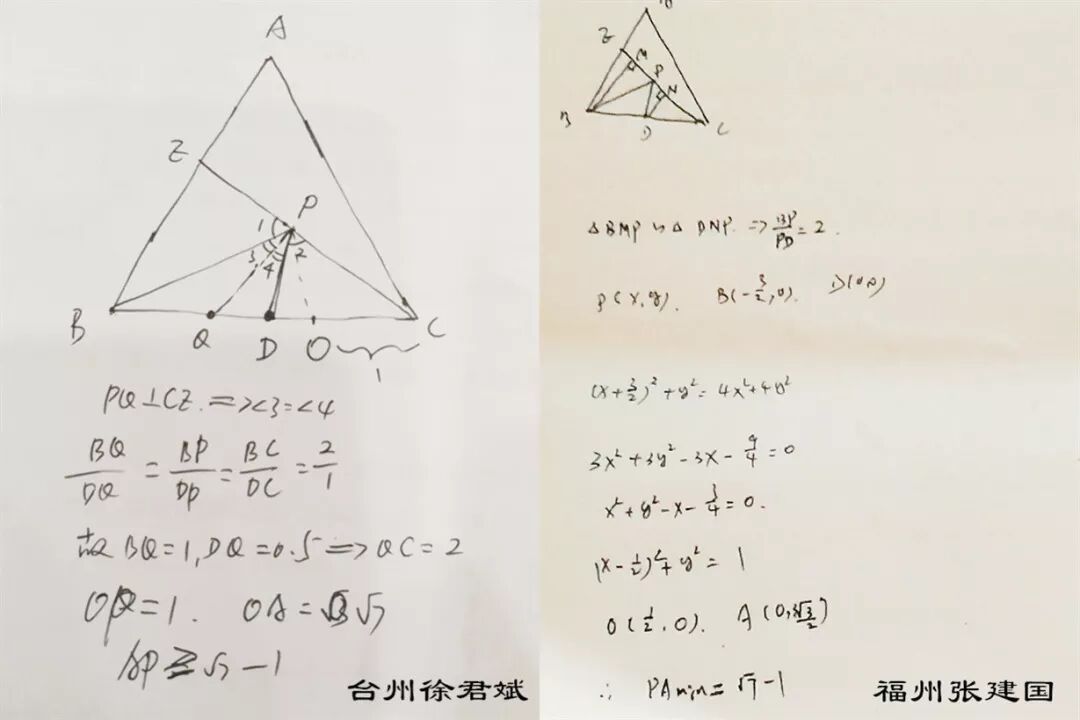 A
Z
P
1
3
4
2
B
Q
D
O
C
1
PQ⊥CZ. => ∠3=∠4
BQ/DQ = BP/DP = BC/DC = 2/1
BQ=1, DQ=0.5 => QC=2
OP=1. OA=√7
AP≥√7-1
台州徐君斌
Z
M
P
N
B
D
C
△BMP ∽ △DNP. => BP/PD=2.
P(x,y). B(-3/2,0). D(0,0)
(x+3/2)²+y²=4x²+4y²
3x²+3y²-3x-9/4=0
x²+y²-x-3/4=0.
(x-1/2)²+y²=1
O(1/2,0). A(0,3√3/2)
∴ PAmin=√7-1
福州张建国